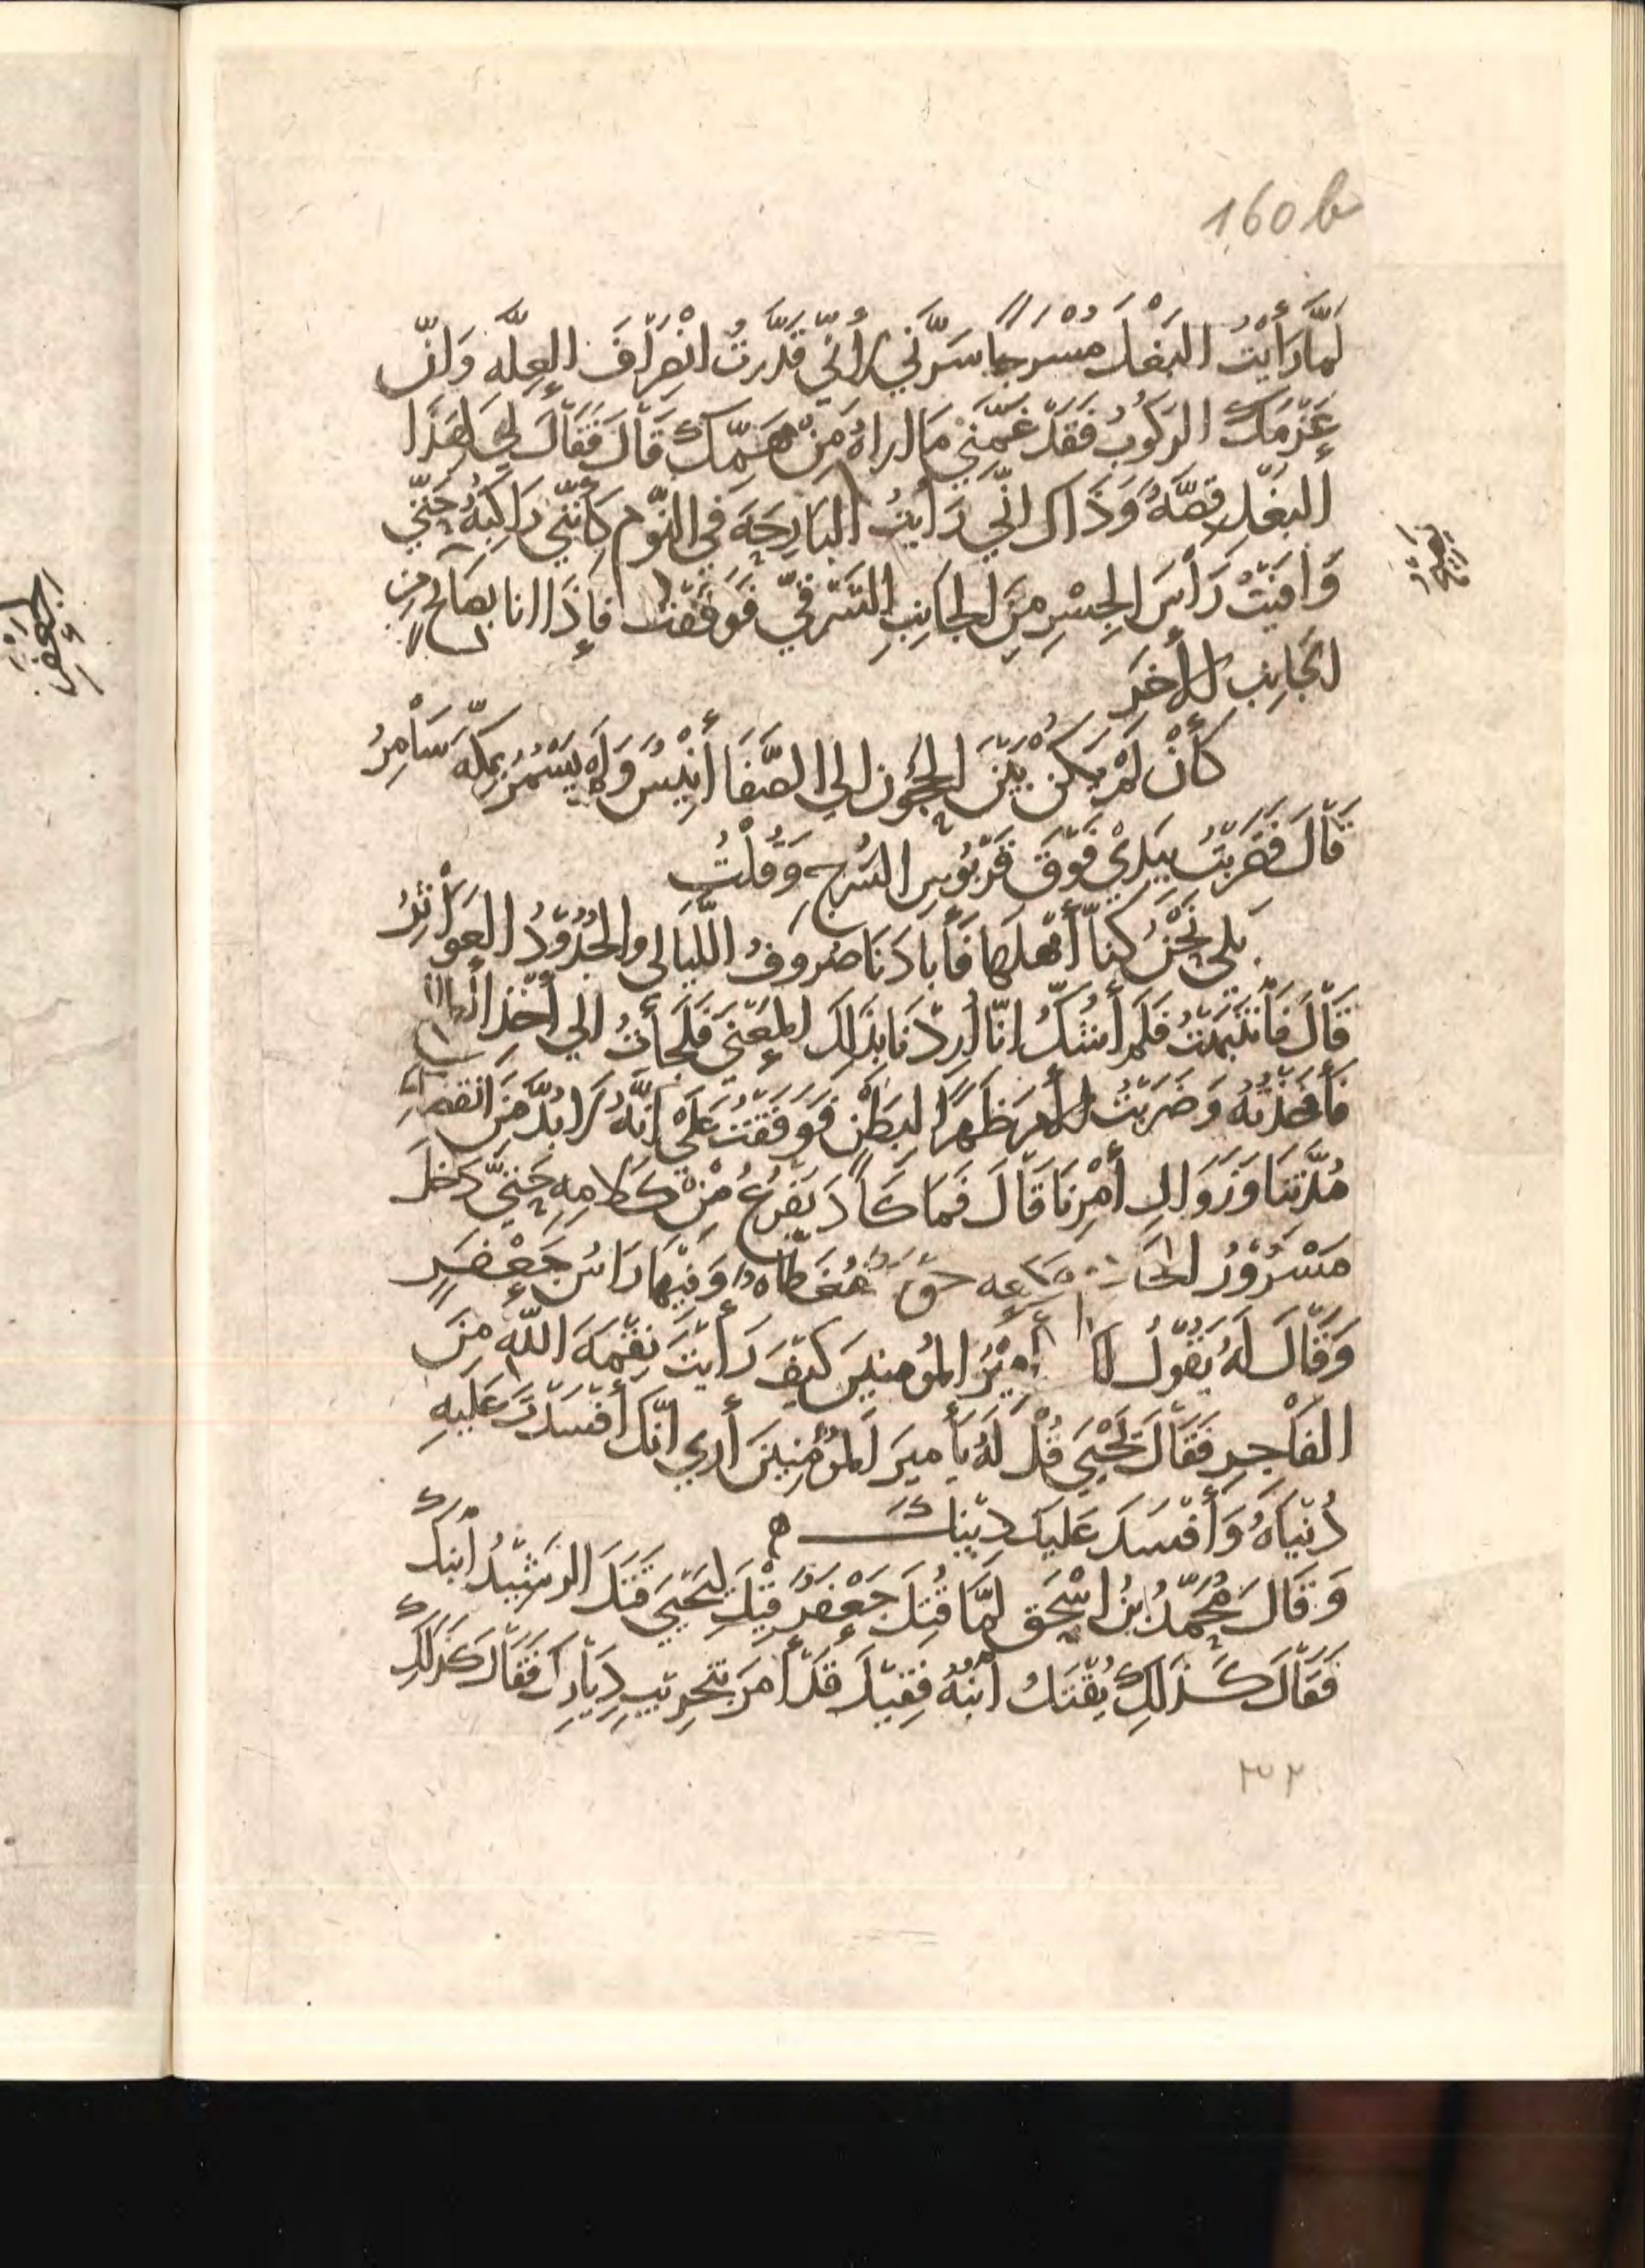 160b
لَمَّا رَأَيْتُ البَغْلَ مُسْرَجًا سَرَّنِي لِأَنِّي قَدَّرتُ انْصِرَافَ العِلَّهِ وَانّ
عَزْمَكَ الرَكُوبُ فَقَدْ غَمَّنِي مَا اراهُ مِنْ هَمِّكَ قَالَ فَقَالَ لِي لِهَذَا
البَغْلِ قِصَّهٌ وَذَاكَ انِّي رَأَيتُ البَارِحَةَ فِي النَّوْم كَأَنَّنِي رَاكِبَهُ حَتّي
وَافَيْتُ رَأْسَ الجِسْرِ مِنَ الجانِبِ الشَّرقيّ فَوَقَفْتُ فَإِذَا انا بِصَايحٍ مِن
الجَانِبِ الأخَرِ
كَأَنْ لَمْ يَكُن بَيْنَ الحَجُون الي الصَّفَا أَنِيْسٌ وَلَم يَسْمُرْ بِمَكّهَ سَامِرُ
قَالَ فَضَربْتُ بِيَدِي فَوْقَ قَرْبُوسِ السَّرجِ وَقُلْتُ
بَلي نَحْنُ كُنَّا أَهْلَهَا فَأَبَادَنَا صُرُوفُ اللَّيَالِي والجُدُوْدُ العَوَاثِرُ
قَالَ فَأنْتَبَهْتُ فَلَم أشُكّ انّا أُرِدْنَا بِذَلِكَ المَعْنَي فَلَجأتُ الي أَخْذِ
فَأَخَذْتُهُ وَضَرَبْتُ الأَمرَ ظَهْرًا لِبَطْنٍ فَوَقَفْتُ عَلَي انَّهُ لَا بُدَّ مِنَ انقضاء
مُدَّتِنَا وَزَوَالِ أَمْرِنَا قَالَ فَمَا كَادَ يَفْرغُ مِنْ كَلَامِهِ حَتَّي دَخَلَ
مَسْرُوْرٌ وَمَعه مُغَطَّاه وَفِيْهَا رَاسُ جَعْفَرٍ
وَقَالَ لَهُ يَقُولُ لكَ أَمِيْرُ المُؤمنِينَ كَيْفَ رَأَيْتَ نِقْمَهَ اللَّه مِنَ
الفَاجِرِ فَقَالَ يَحْيَي قُلْ لَهُ يَأمِيرَ المُؤْمِنِينَ أَرَي انَّكَ أَفْسَدْتَ عَلَيهِ
دُنْيَاهُ وَأَفْسَدَ عَلَيكَ دِيْنَكَ
وَقَالَ مُحَمَّدُ بنُ اسْحَق لَمَّا قُتِلَ جَعْفَرٌ قِيْلَ لِيَحْيَي قَتَلَ الرَشِيْدُ ابْنَكَ
فَقَالَ كَذَلِكَ يُقْتَلُ ابْنُهُ فَقِيْلَ قَدْ أَمَرَ بتَخرِيبِ دِيَارِكَ فَقَالَ كَذَلِكَ